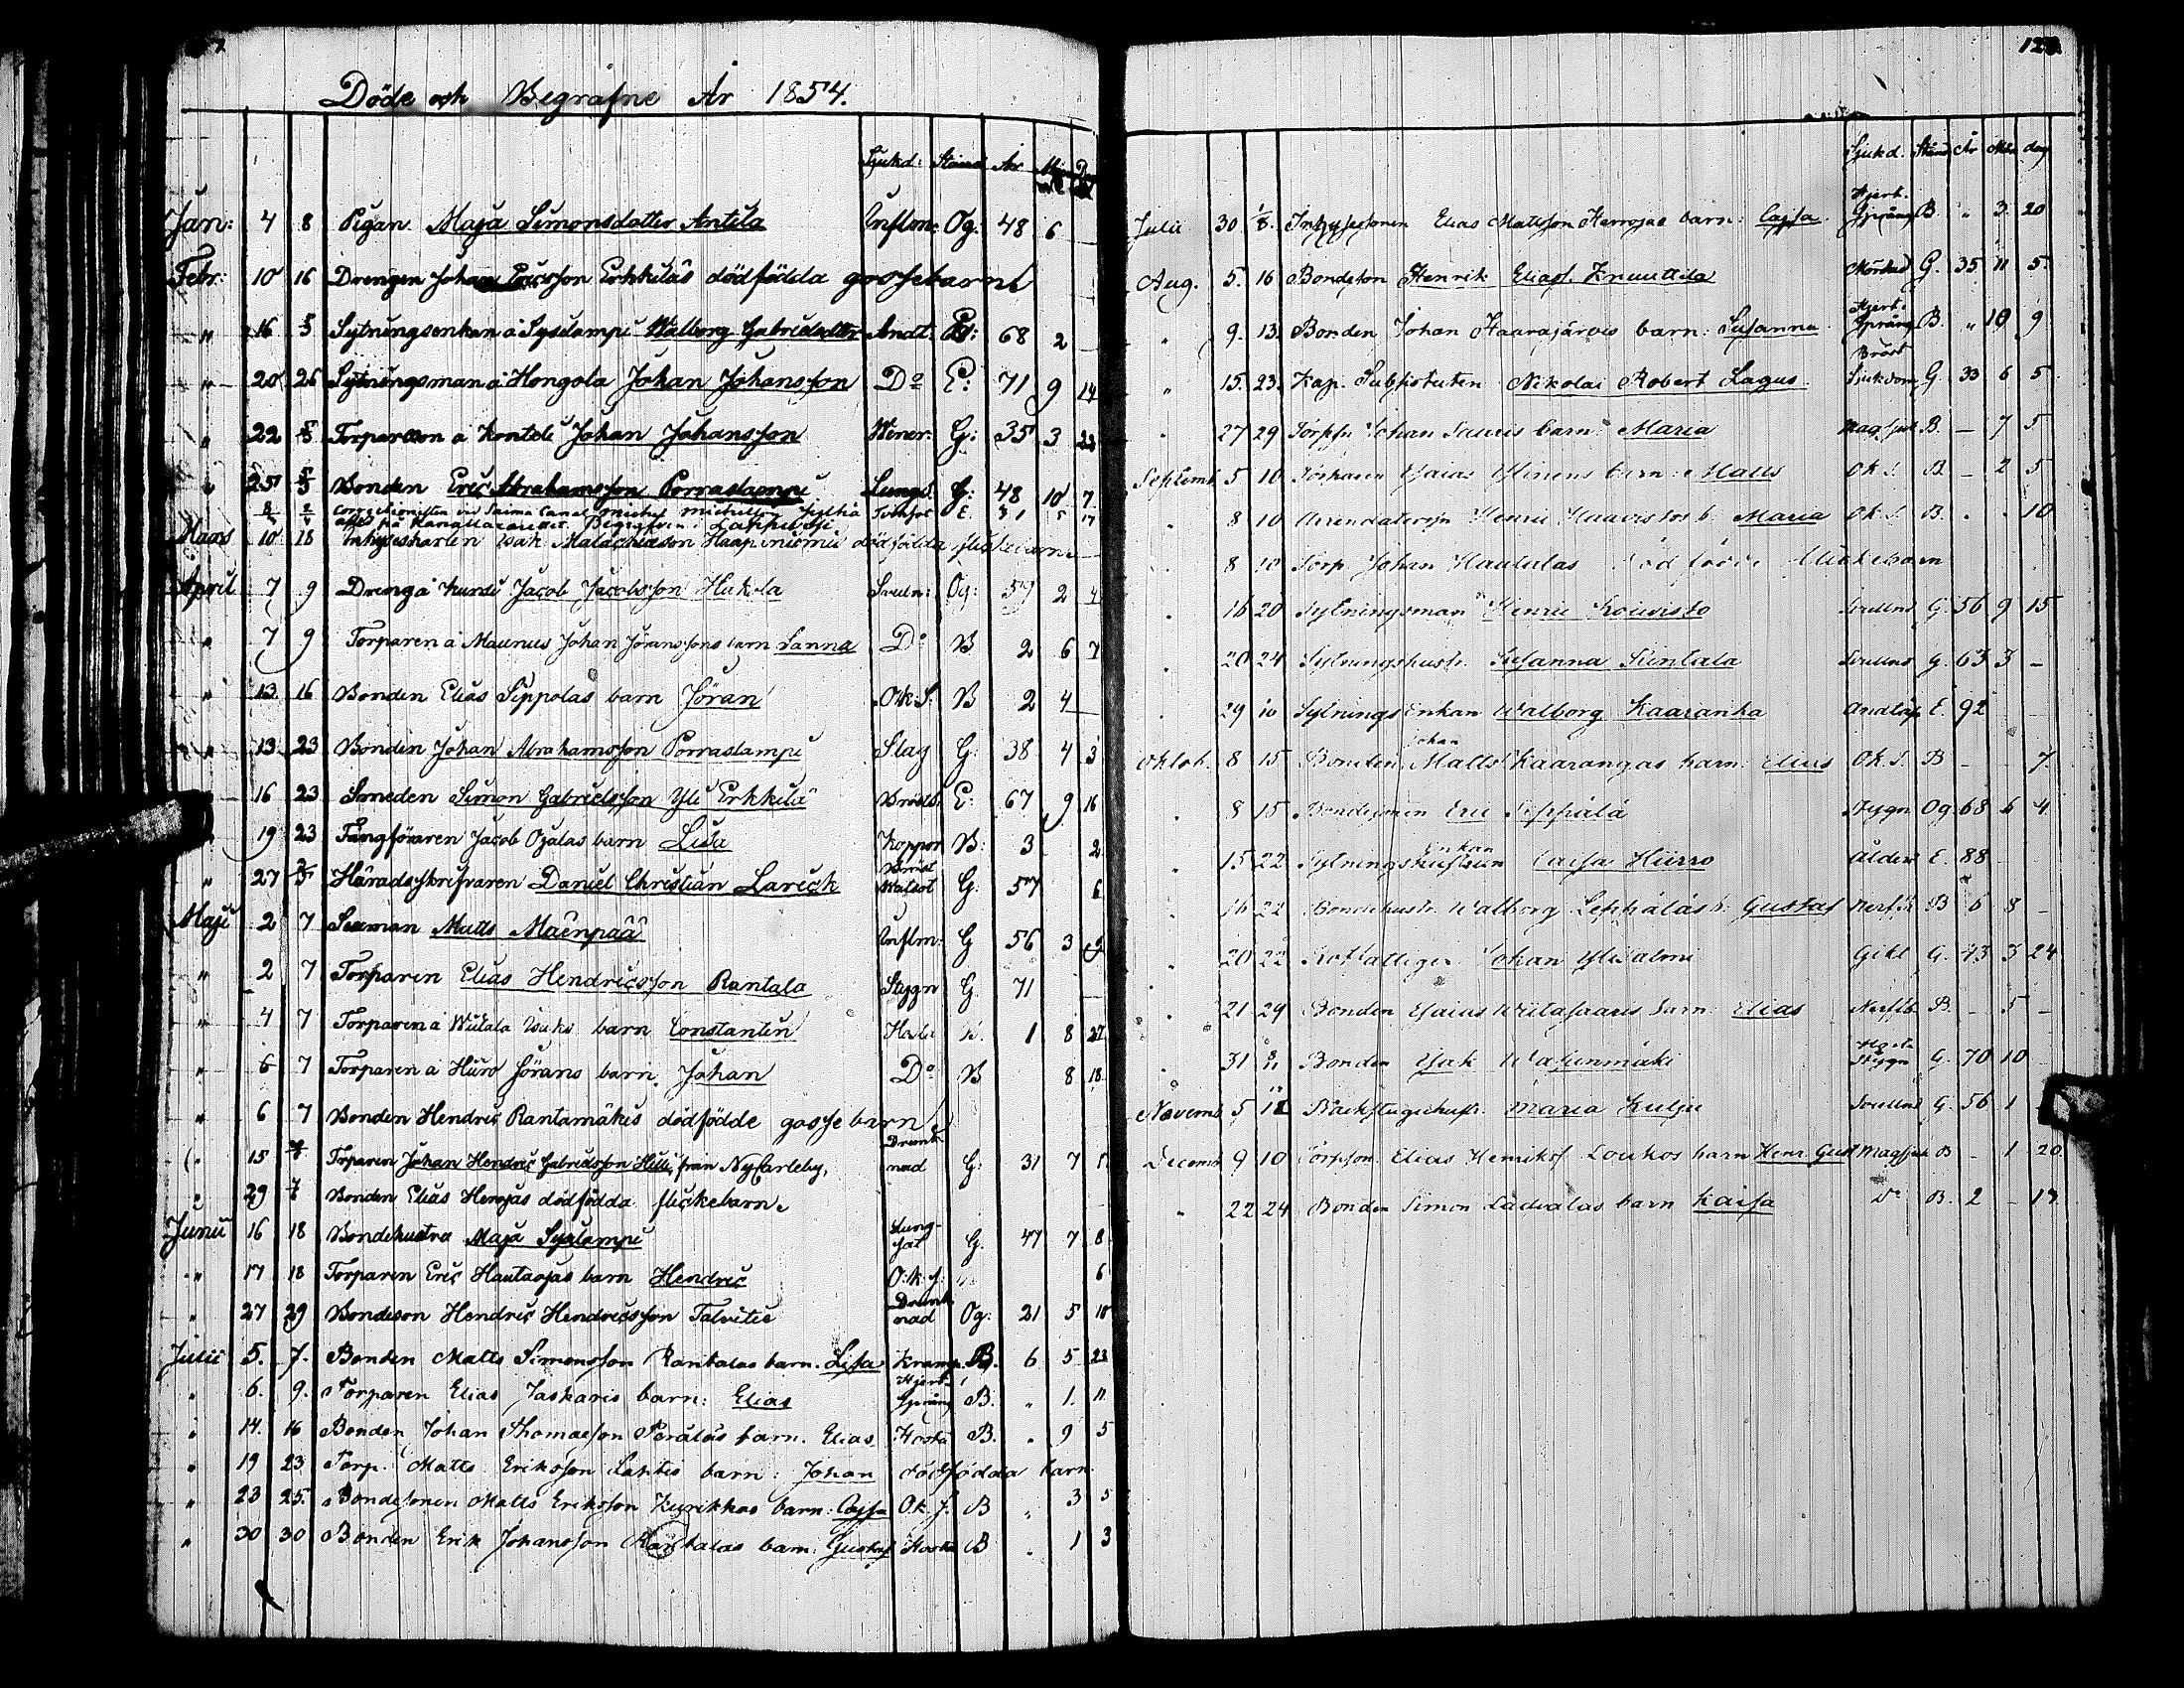 Döde och Begrafne År 1854.
Sjukd: Stånd År
Jan: 4 8 Pigan Maja Simonsdotter Antila Inflm: Og: 48 6
Febr: 10 16 Drengen Johan Ericsson Erkkiläs dödfödda gossebarn
" 16 5/3 Sytningsenkan å Sysilampi Walborg Gabrielsdotter Andt: E: 68 2
" 20 26 Sytningsman å Hongola Johan Johansson Do E: 71 9 14
" 22 5/3 Torpareson å Konteli Johan Johansson Wener: G: 35 3 22
" 25 5/3 Bonden Eric Abrahamsson Porraslampi Lungs. G: 48 10 7
Correctionisten vid Saima Canal Michel Michelsson E. 31 5 17
afled på Kanallazarettet. Begrafven i Lappvesi
Mars 10 18 Inhyseskarlen Isak Malachiasson Haapiniemis dödfödda flickebarn
April 7 9 Dreng å Kurki Jacob Jacobsson Hakola Svuln: Og: 57 2 4
" 7 9 Torparen å Maunus Johan Jöranssons barn Sanna Do B 2 6 7
" 13 16 Bonden Elias Sippolas barn Jöran Ok S. B 2 4
" 13 23 Bonden Johan Abrahamsson Porraslampi Slag G: 38 4 3
16 23 Smeden Simon Gabrielsson Yli Erkkilä Bröstb. E: 67 9 16
19 23 Fångföraren Jacob Ojalas barn Lisa Koppor B: 3 2
" 27 3/5 Häradsskrifvaren Daniel Christian Larick Bröst Watsot G: 57 6
Maji 2 7 Sexman Matts Mäenpää Inflm: G 56 3 9
" 2 7 Torparen Elias Hendricsson Rantala Stygn G 71
" 4 7 Torparen å Wiitala Isaks barn Constantin Hosta B. 1 8 27
" 6 7 Torparen å Hiiro Jörans barn Johan Do B 8 18
" 6 7 Bonden Hendric Rantamäkis dödfödde gossebarn
" 15 Torparen Johan Hendric Gabrielsson Hilli, från NyCarleby, Drunknad G: 31 7 5
" 29 Bonden Elias Herrojas dödfödda flickebarn
Junii 16 18 Bondehustru Maja Sysilampi Lungsot G. 47 7 8
" 17 18 Torparen Eric Hautaojas barn Hendric O.k.s. 6
" 27 29 Bondeson Hendric Hendricsson Talvitie Drunknad Og: 21 5 10
Julii 5. 7. Bonden Matts Simonsson Rantalas barn. Lisa Kramp. B. 6 5 23
" 6. 9. Torparen Elias Jaskaris barn: Elias Hjertsprång B. " 1. 11
" 14. 16 Bonden Johan Thomasson Peräläs barn. Elias. Hosta B. " 9 5
" 19 23 Torp. Matts Eriksson Lahtis barn: Johan dödfödda barn
" 23 25. Bondesonen Matts Eriksson Kurikkas barn: Cajsa Ok. s. B " 3 5
" 30 30 Bonden Erik Johansson Rantalas barn: Gustaf Hosta B " 1 3
Sjukd. Stånd År Mån dag
Julii 30. Inhysessonen Elias Mattsson Herrojas barn: Cajsa. Hjertsprång B. " 3. 20
Aug. 5. 16 Bondeson Henrik Eliass. Knuuttila Mördad G. 35 11 5.
" 9. 13. Bonden Johan Haarajärvis barn: Susanna. Hjertsprång B. " 10 9
" 15. 23. Kap. Substituten Nikolai Robert Lagus. Bröst Sjukdom G. 33 6 5
" 27 29 Torpn Johan Sauris barn: Maria Magsjuk B. — 7 5
Septemb. 5 10 Torparen Esaias Ylinens barn: Matts Ok S. B. — 2 5
. 8 10 Arrendatorsn Henric Haavistos b. Maria Ok S. B. . . 10
. 8 10 Torp. Johan Hautalas död född flickebarn
. 16 20 Sytningsman Henric Koivisto Svullnd G. 56 9 15
. 20 24 Sytningshustr. Susanna Suntala Svullnd G. 63 3 —
. 29 Sytnings Enkan Walborg Kaaranka Andtäp E. 92
Oktob. 8 15 Bonden Johan Matts Kaarangas barn: Elias Ok. S. B — — 7.
. 8 15 Bondesonen Eric Seppälä Stygn Og. 68 6 4.
. 15 22 Sytningshustrun Enkan Caisa Hiirro Ålderd. E. 88
. 16 22 Bondehustr. Walborg Leppäläs b. Gustaf Nerffb B 6 8 —
. 20 22 Rotfattiger Johan Ylisalmi Gikt G. 43 3 24
. 21 29 Bonden Esaias Wiitasaaris barn: Elias Nerffb. B. — 5 —
. 31 Bonden Isak Wasunmäki Stygn G. 70 10
Novemb. 5 12 Backstuguhustr. Maria Kulju Svullnd G. 56 1
Decemb. 9 10 Torpson. Elias Henrikss. Loukos barn Henr Gust Magsjuk B — 1 20.
" 22 24 Bonden Simon Ladvalas barn Kaisa Do B. 2 — 17.